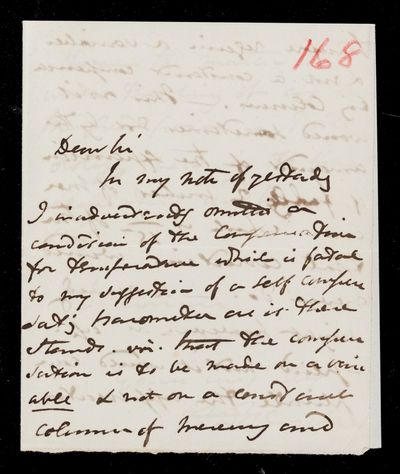 168
Dear Sir
In my note of yesterday
I inadvertently omitted a
condition of the Compensation
for temperature which is fatal
to my suggestion of a self compen
sat&g barometer as it there
stands. viz. that the compen
sation is to be made on a vari
able & not on a constant
column of mercury and